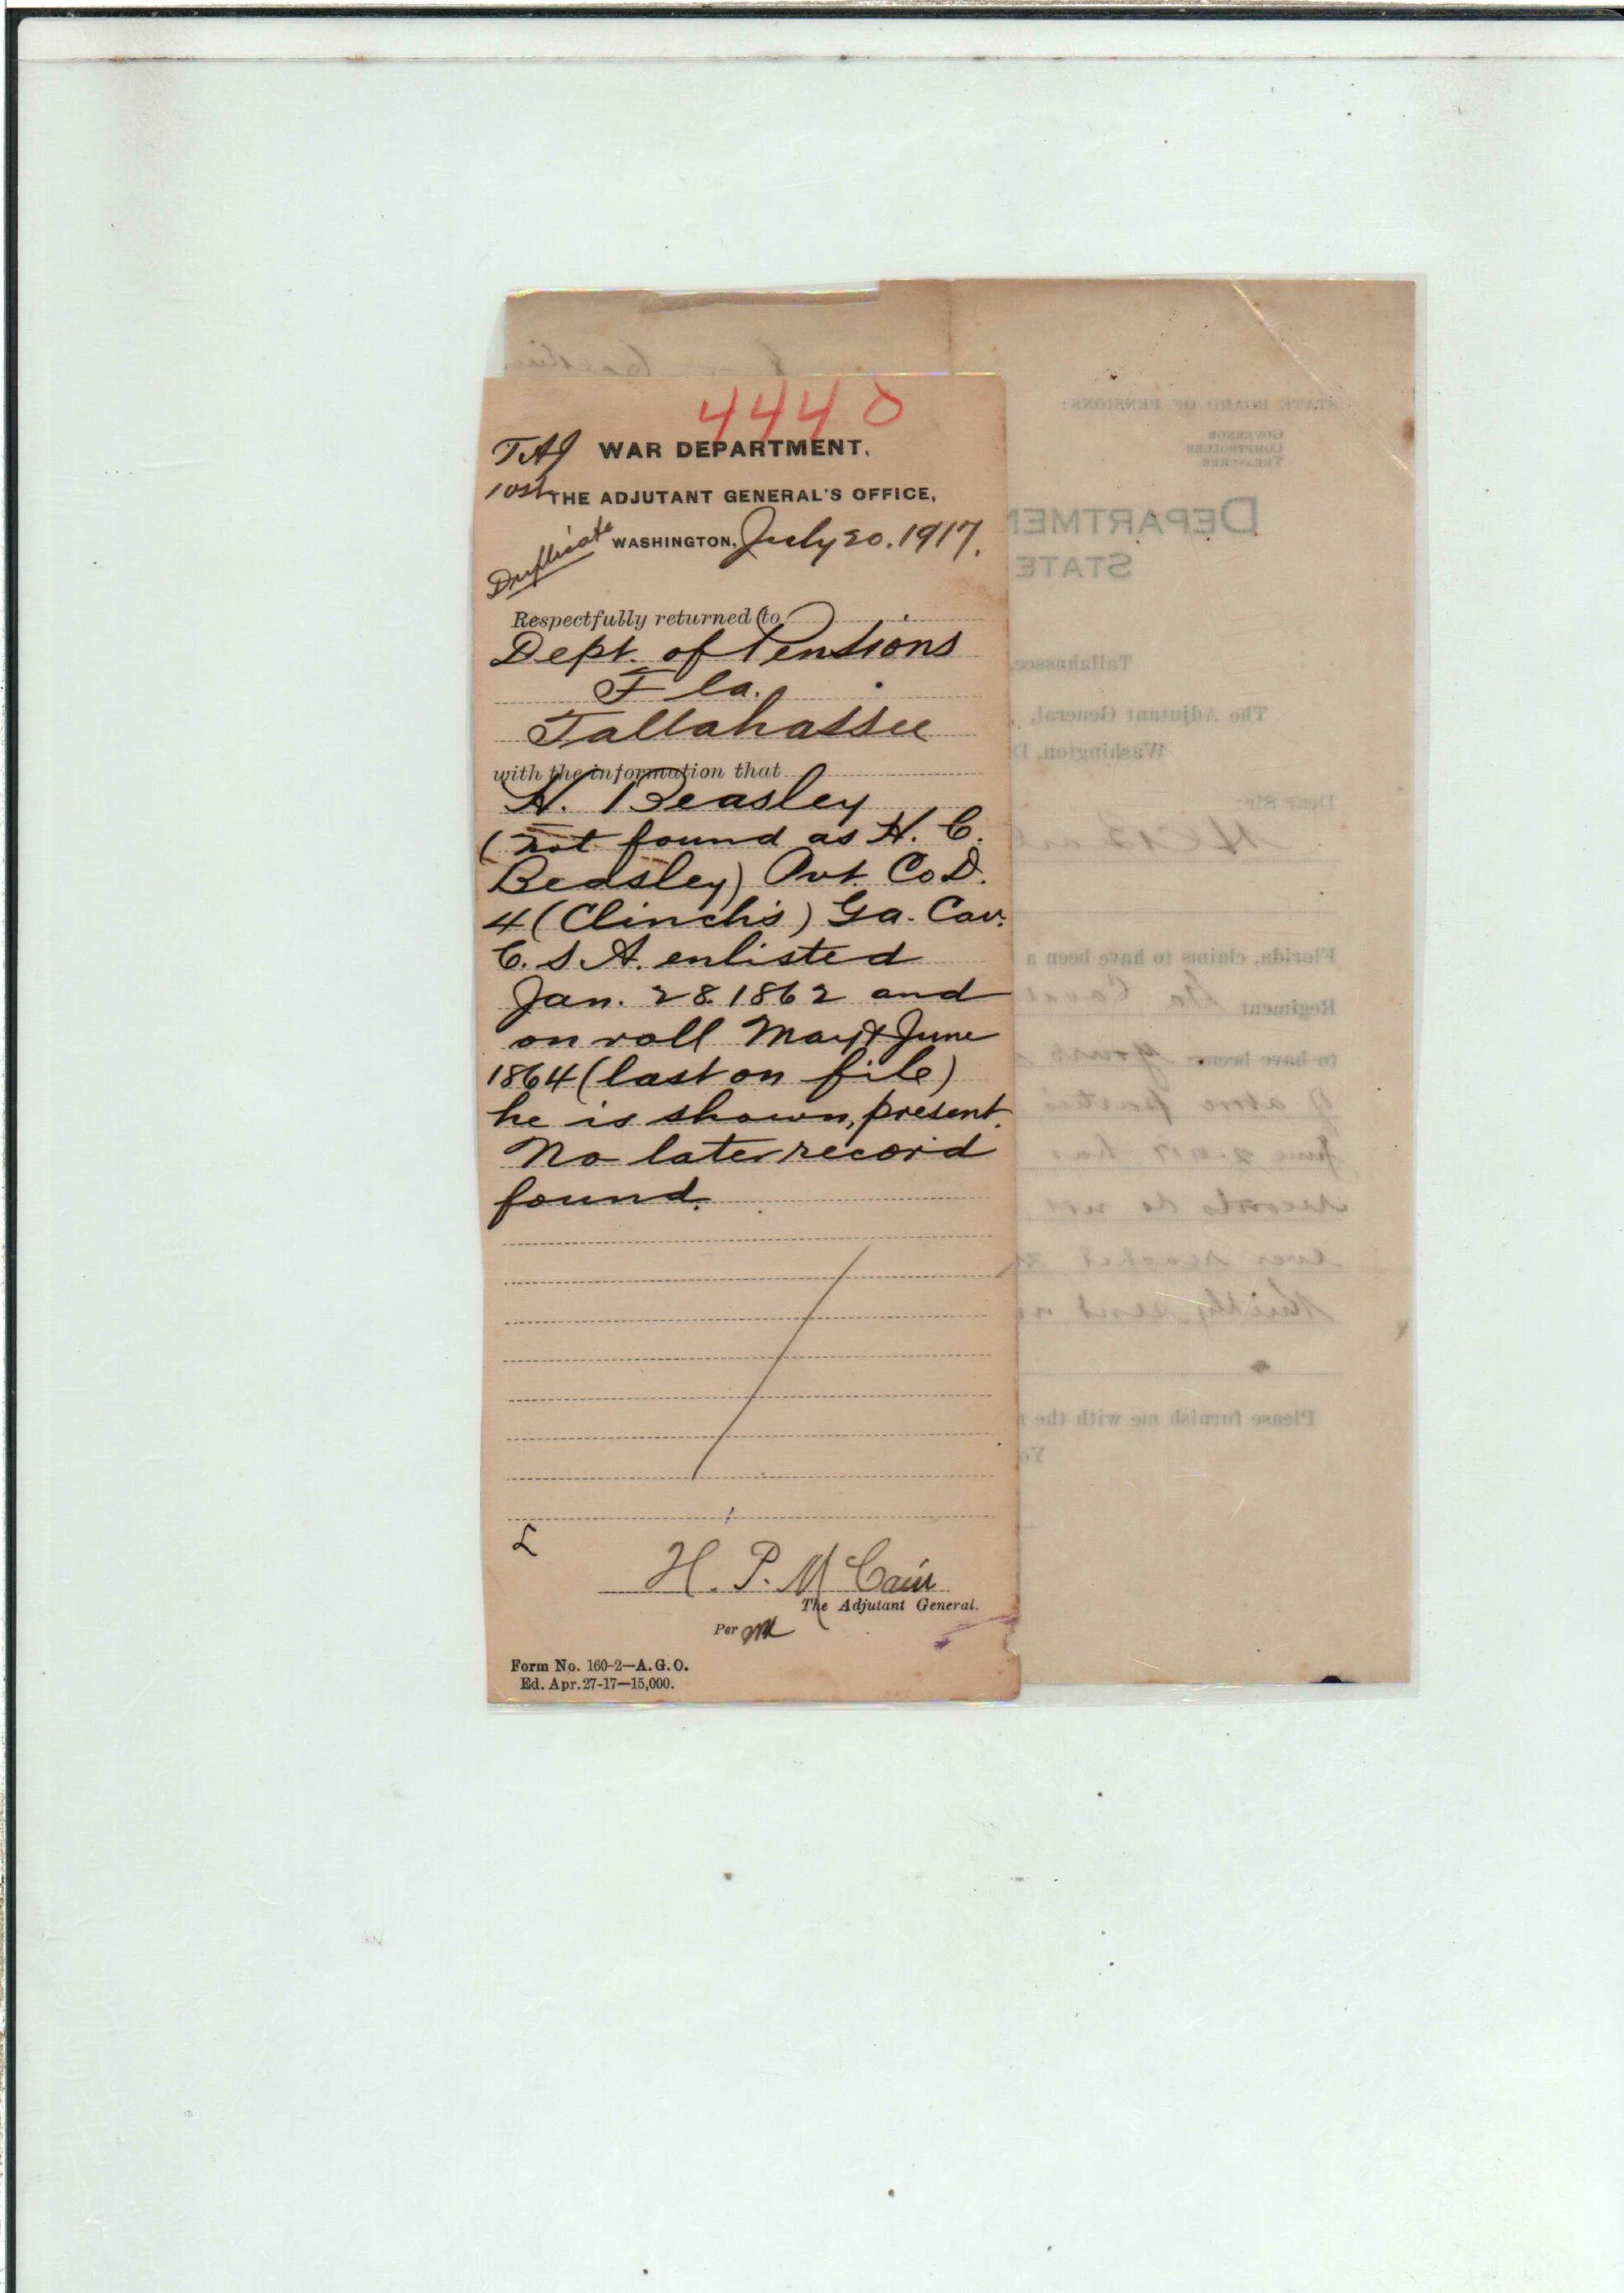 4440
TAG WAR DEPARTMENT,
THE ADJUTANT GENERAL'S OFFICE,
Duplicate WASHINGTON, July 20, 1917.
Respectfully returned to
Dept. of Pensions
Fla.
Tallahassee
with the information that
H. Beasley
(not found as H. C.
Beasley) Pvt. Co D.
4 (Clinch's) Ga. Cav.
C. S. A. enlisted
Jan. 28. 1862 and
on roll May & June
1864 (last on file)
he is shown, present.
No later record
found.
H. P. McCain
The Adjutant General.
Per
Form No. 160-2—A.G.O.
Ed. Apr. 27-17—15,000.
STATE BOARD OF PENSIONS:
GOVERNOR
COMPTROLLER
TREASURER
DEPARTMEN
STATE
Tallahassee,
The Adjutant General,
Washington, D
Dear Sir:
Florida, claims to have been a
Regiment Ga Cava
to have been
of above
June
records do not
ever
Kindly send
Please furnish me with the
Yo